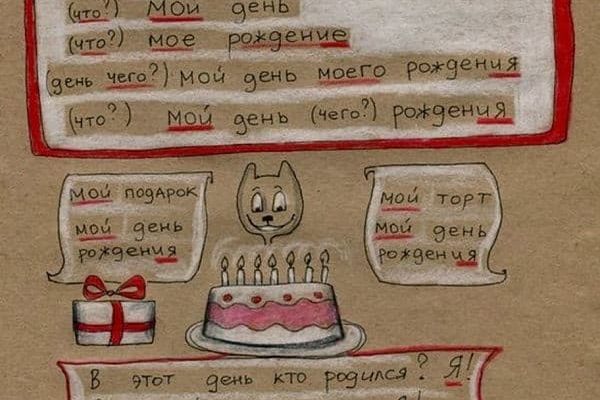 (что?) мой день
(что?) мое рождение
(день чего?) мой день моего рождения
(что?) мой день (чего?) рождения
мой подарок
мой день
рождения
мой торт
мой день
рождения
В этот день кто родился? Я!